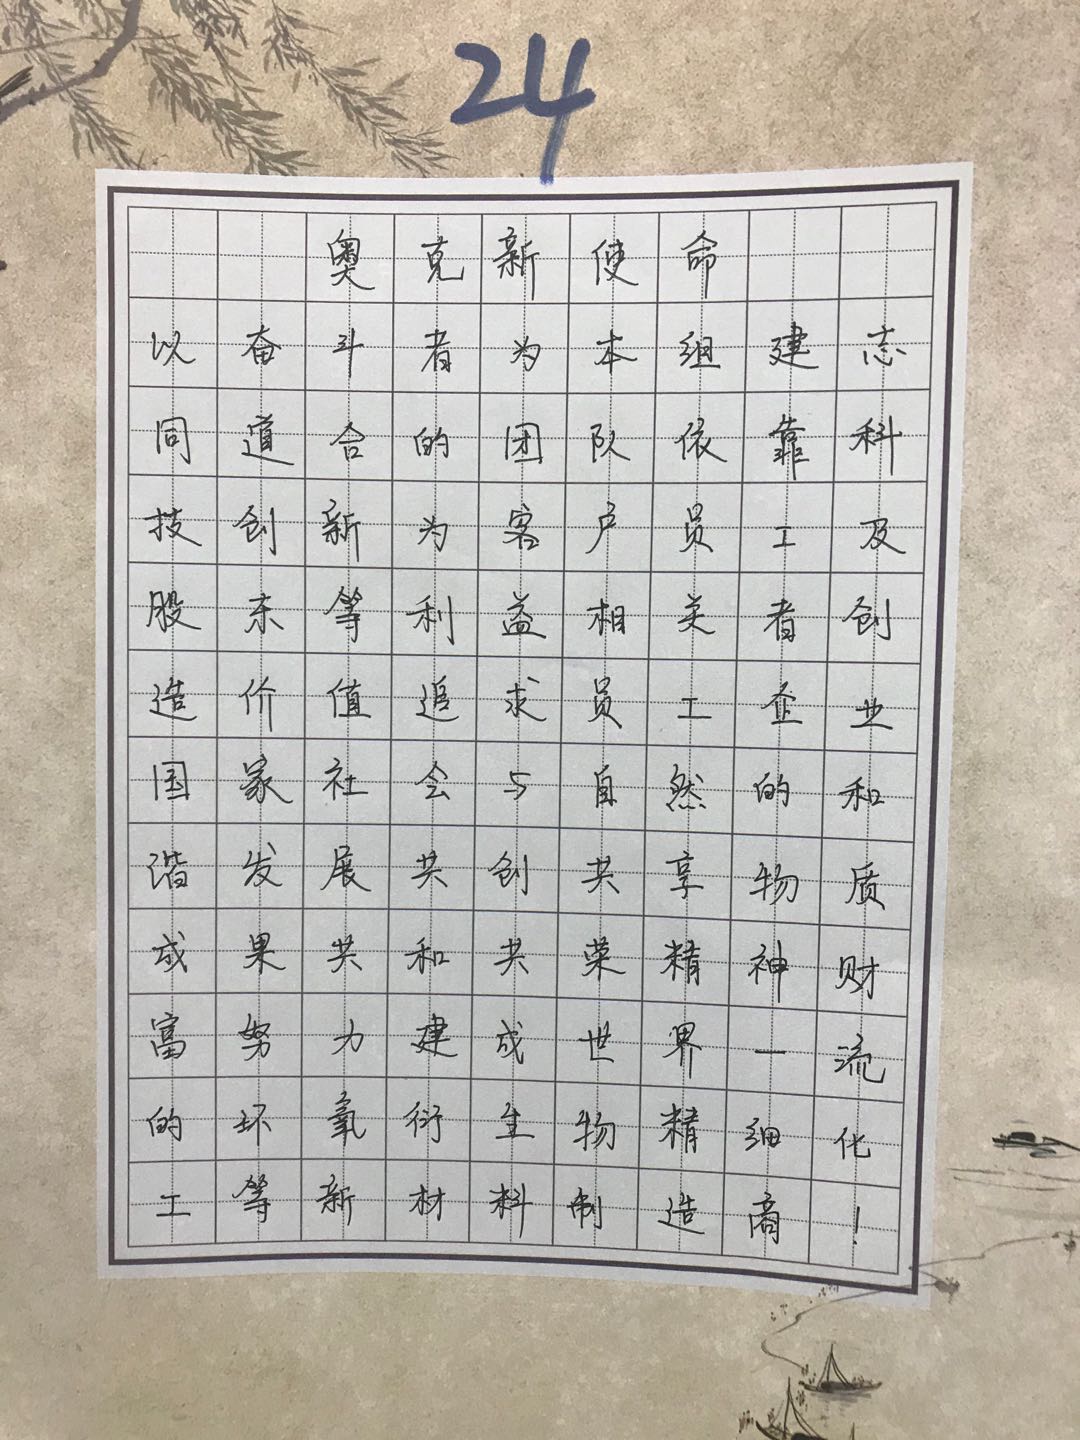 24
奥克新使命
以奋斗者为本组建志
同道合的团队依靠科
技创新为客户员工及
股东等利益相关者创
造价值追求员工企业
国家社会与自然的和
谐发展共创共享物质
成果共和共荣精神财
富努力建成世界一流
的环氧衍生物精细化
工等新材料制造商！